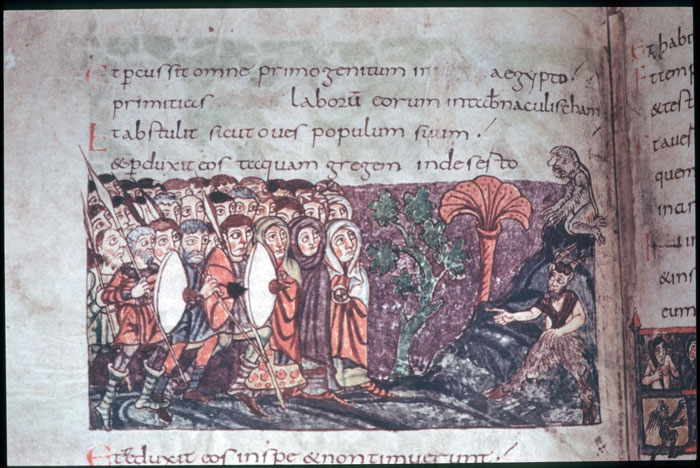 Et percussit omne primogenitum in aegypto
primitias laborū eorum in tabernaculis cham
Et abstulit sicut oves populum suum
& perduxit eos tamquam gregem in deserto
Et eduxit eos in spe & non timuerunt
& habi
& tem
& test
taves
quem
in
& in
eum